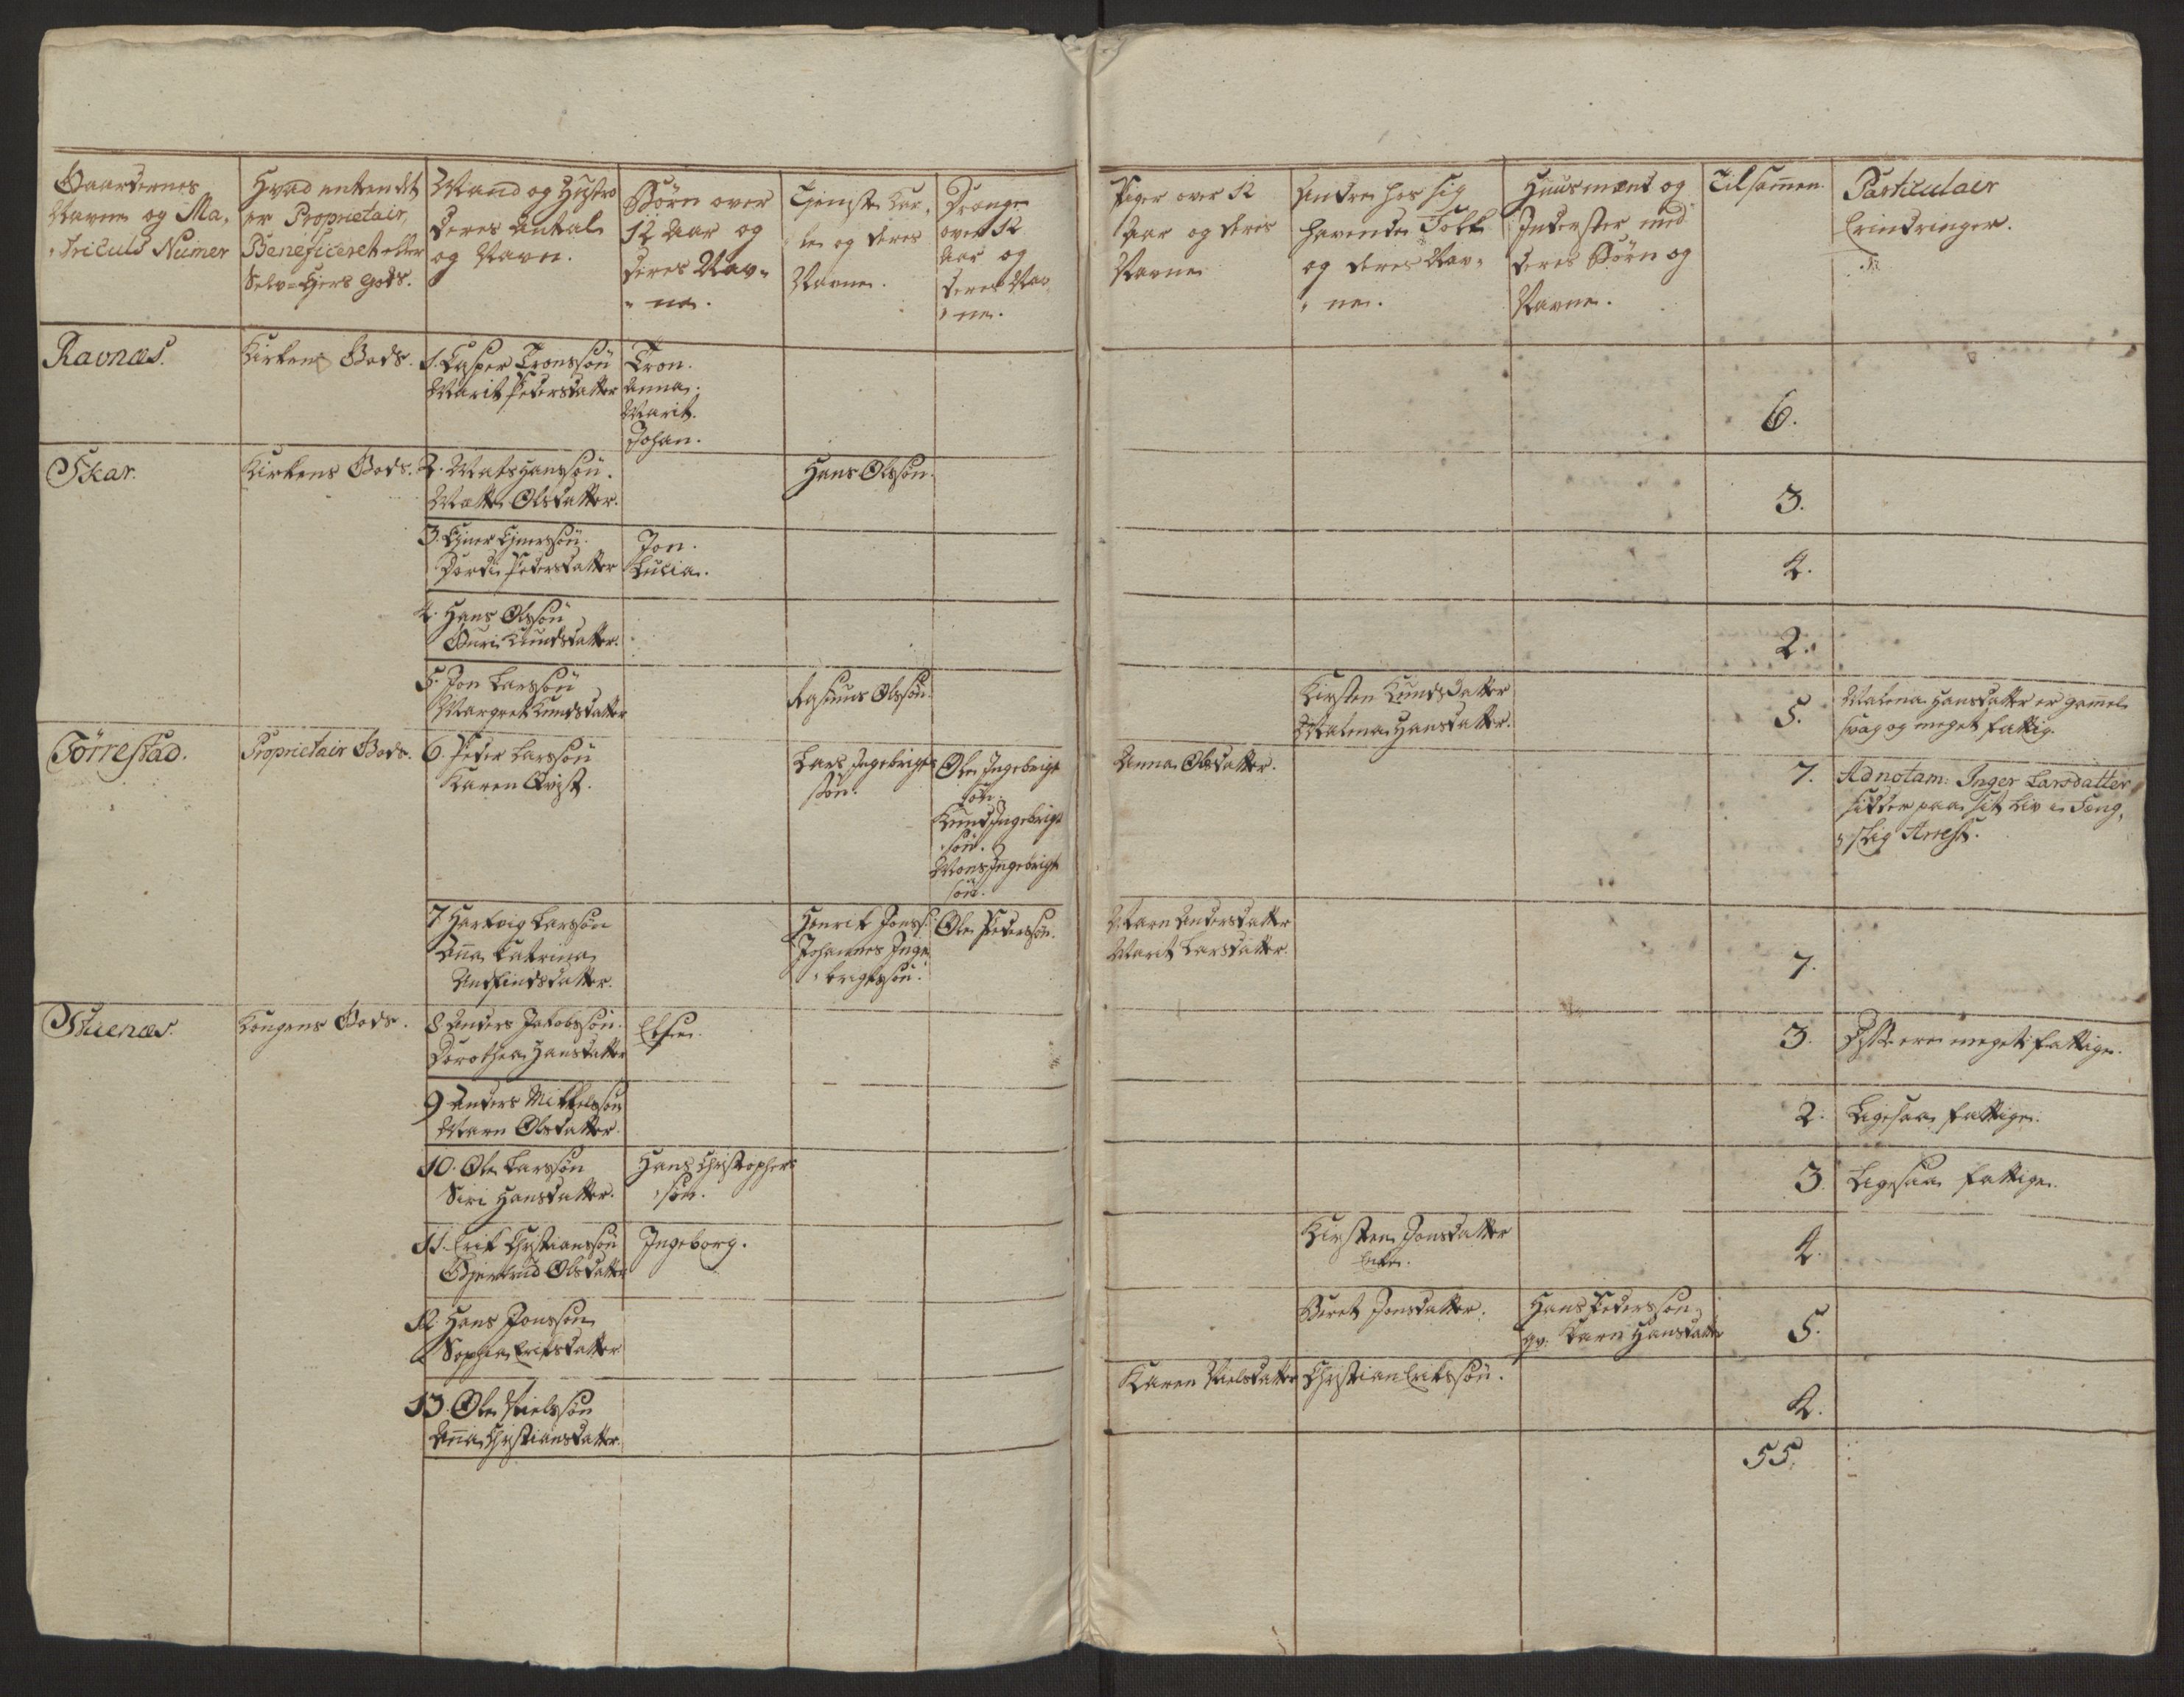 Gaardernes
Navne og Ma-
-triculs Numer
Hvad enten det
er Proprietair,
Beneficeret eller
Selv-Ejers gods.
Mand og Hustro
deres Antal
og Navn.
Börn over
12 Aar og
deres Nav-
- ne.
Tjeniste Kar-
le og deres
Navne.
Drenge
over 12
Aar og
deres Nav-
- ne.
Piger over 12
Aar og deres
Navne
Andre hos sig
havende Folk
og deres Nav-
- ne.
Huusmænd og
Inderster med
deres Börn og
Navne.
Tilsammen.
Particulair
Erindringer.
Ravnæs.
Kirkens Gods.
1. Casper Tronssön
Marit Pedersdatter
Tron.
Anna.
Marit.
Johan.
6.
Skar.
Kirkens Gods.
2. Mats Hanssön.
Mætte Olsdatter.
Hans Olssön.
3.
3. Ejner Ejnerssön.
Dordi Pedersdatter
Jon.
Lucia.
4.
4. Hans Olssön
Guri Knudsdatter.
2.
5. Jon Larssön
Margret Knudsdatter
Rasmus Olssön.
Kirsten Knudsdatter
Malena Hansdatter.
5.
Malena Hansdatter er gammel
svag og meget fattig.
Törrestad.
Proprietair Gods.
6. Peder Larssön
Karen Qvist.
Lars Ingebrigts
sön.
Ole Ingebrigt
sön.
Knud Ingebrigt
-sön.
Mons Ingebrigt
sön.
Anna Olsdatter.
7.
Ad notam: Inger Larsdatter
sidder paa sit Liv i Feng-
-slig Arrest.
7 Hartvig Larssön
Anna Catrina
Andfindsdatter.
Henrik Jonss:
Johannes Inge-
-brigtssön.
Ole Pederssön.
Maren Andersdatter
Marit Larsdatter.
7.
Stuenæs.
Kongens Gods.
8 Anders Jakobssön.
Dorothea Hansdatter
Elsen.
3.
Disse ere meget fattige.
9 Anders Mikkelssön
Maren Olsdatter.
2.
Ligesaa fattige.
10. Ole Larssön
Siri Hansdatter.
Hans Christophers
-sön.
3.
Ligesaa fattige.
11. Erik Christianssön
Gjertrud Olsdatter
Ingeborg.
Kirsten Jonsdatter
Enke.
4.
12. Hans Jonssön
Sophia Eriksdatter
Beret Jonsdatter.
Hans Pederssön
qv: Karen Hansdatter
5.
13. Ole Nielssön
Anna Christiansdatter.
Karen Nielsdatter
Christian Erikssön.
4.
55.